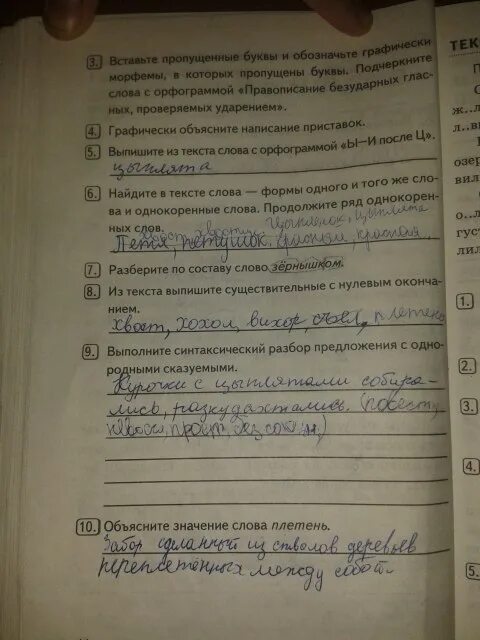 3. Вставьте пропущенные буквы и обозначьте графически
морфемы, в которых пропущены буквы. Подчеркните
слова с орфограммой «Правописание безударных глас-
ных, проверяемых ударением».
4. Графически объясните написание приставок.
5. Выпишите из текста слова с орфограммой «Ы—И после Ц».
цыплята
6. Найдите в тексте слова — формы одного и того же сло-
ва и однокоренные слова. Продолжите ряд однокорен-
ных слов. хвост, хвостик, цыпленок, цыплята
Петя, петушок, красным, красная,
7. Разберите по составу слово зёрнышком.
8. Из текста выпишите существительные с нулевым оконча-
нием.
хвост, хохол, вихор, съел, плетень
9. Выполните синтаксический разбор предложения с одно-
родными сказуемыми.
Курочки с цыплятами собира-
лись, раскудахтались. (повест,
невоскл, прост, без
10. Объясните значение слова плетень.
Забор сделанный из стволов деревьев
переплетённых между собой.
ТЕК
П
С
ж..л
л..в
озер
вил
о..л
гус
лил
1.
2.
3.
4.
5.